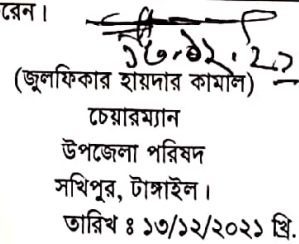 রেন।
১৩.১২.২১
(জুলফিকার হায়দার কামাল)
চেয়ারম্যান
উপজেলা পরিষদ
সখিপুর, টাঙ্গাইল।
তারিখ ঃ ১৩/১২/২০২১ খ্রি.